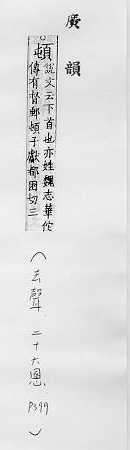 廣韻
頓說文云下首也亦姓魏志華佗
傳有督郵頓子獻都困切三
(去聲 二十六慁 P399)